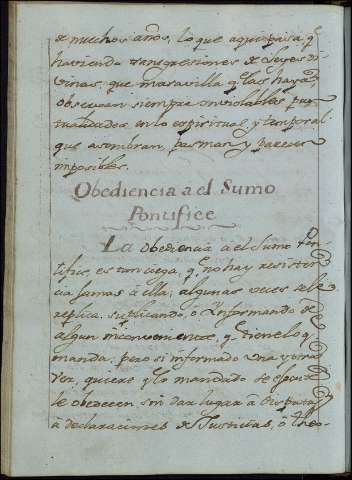 de muchos años, lo que aqui pasa q̃
haviendo transgresiones de Leyes di-
vinas: que maravilla q̃ las haya
observan siempre inviolables pun-
tualidades en lo espiritual, y temporal
que asombran, pasman, y parecen
imposibles.
Obediencia a el Sumo
Pontifice
La obediencia a el Sumo Pon-
tifice, es tan ciega, q̃ no hay resisten-
cia jamas á ella, algunas veces se le
replica, suplicando, o informando de
algun inconveniente, q̃ tiene lo q̃
manda; pero si informado una y otra
vez, quiere q̃ lo mandado se efectue
le obedecen sin dar lugar á disputas,
a declaraciones de Justicias, ó theo-